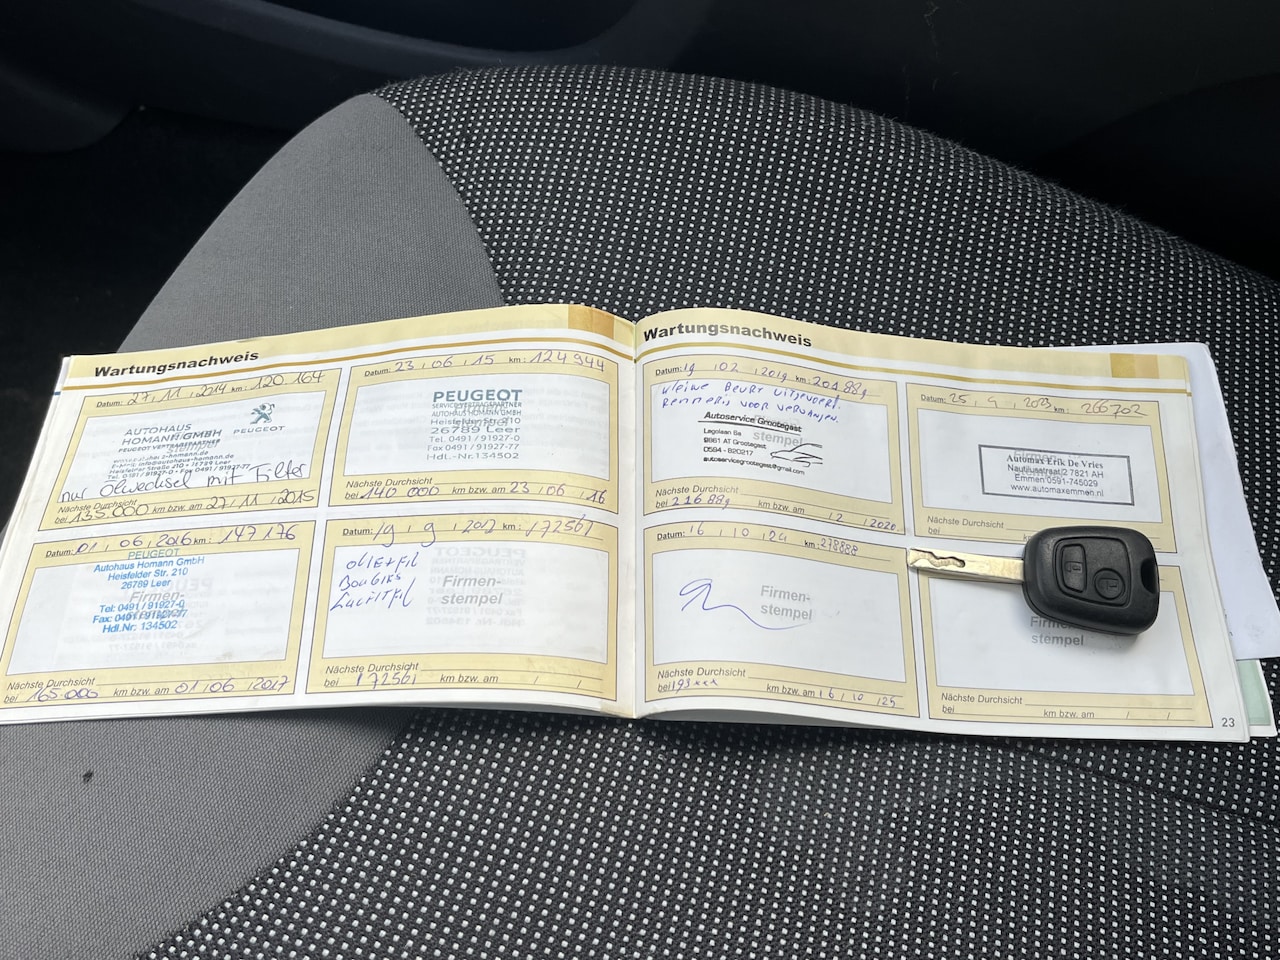 Wartungsnachweis
Datum: 27 , 11 , 2014 km: 120.164
AUTOHAUS
HOMANN GMBH
PEUGEOT VERTRAGSPARTNER
PEUGEOT
Heisfelder Straße 210 • 26789 Leer
Tel. 0491 / 91927-0 • Fax 0491 / 91927-77
nur Ölwechsel mit Filter
Nächste Durchsicht
bei 135.000 km bzw. am 27 / 11 / 2015
Datum: 23 , 06 , 15 km: 124 944
PEUGEOT
SERVICE-VERTRAGSPARTNER
AUTOHAUS HOMANN GMBH
Heisfelder Str. 210
26789 Leer
Tel. 0491 / 91927-0
Fax 0491 / 91927-77
Hdl.-Nr. 134502
Nächste Durchsicht
bei 140 000 km bzw. am 23 / 06 / 16
Datum: 01 , 06 , 2016 km: 147 176
PEUGEOT
Autohaus Homann GmbH
Heisfelder Str. 210
26789 Leer
Firmen-
Tel: 0491 / 91927-0
Fax: 0491 / 91927-77
Hdl.Nr: 134502
Nächste Durchsicht
bei 165.000 km bzw. am 01 / 06 / 2017
Datum: 19 , 9 , 2017 km: 172561
OLIE+FIL
BOUGIES
Firmen-
stempel
Nächste Durchsicht
bei 172561 km bzw. am / /
Wartungsnachweis
Datum: 19 , 02 , 2019 km: 201 889
kleine BEURT UITGEVOERT.
REMMERIS VOOR VERVANGEN.
Autoservice Grootegast
stempel
Legolaan 8a
9861 AT Grootegast
0594 - 820217
autoservicegrootegast@gmail.com
Nächste Durchsicht
bei 216889 km bzw. am / 2 / 2020
Datum: 25 , 9 , 2023 km: 266702
Automax Erik De Vries
Nautilusstraat 2 7821 AH
Emmen 0591-745029
www.automaxemmen.nl
Nächste Durchsicht
bei
Datum: 16 , 10 , 24 km: 278888
Firmen-
stempel
Nächste Durchsicht
bei km bzw. am 16 / 10 / 25
stempel
Nächste Durchsicht
bei km bzw. am / /
23